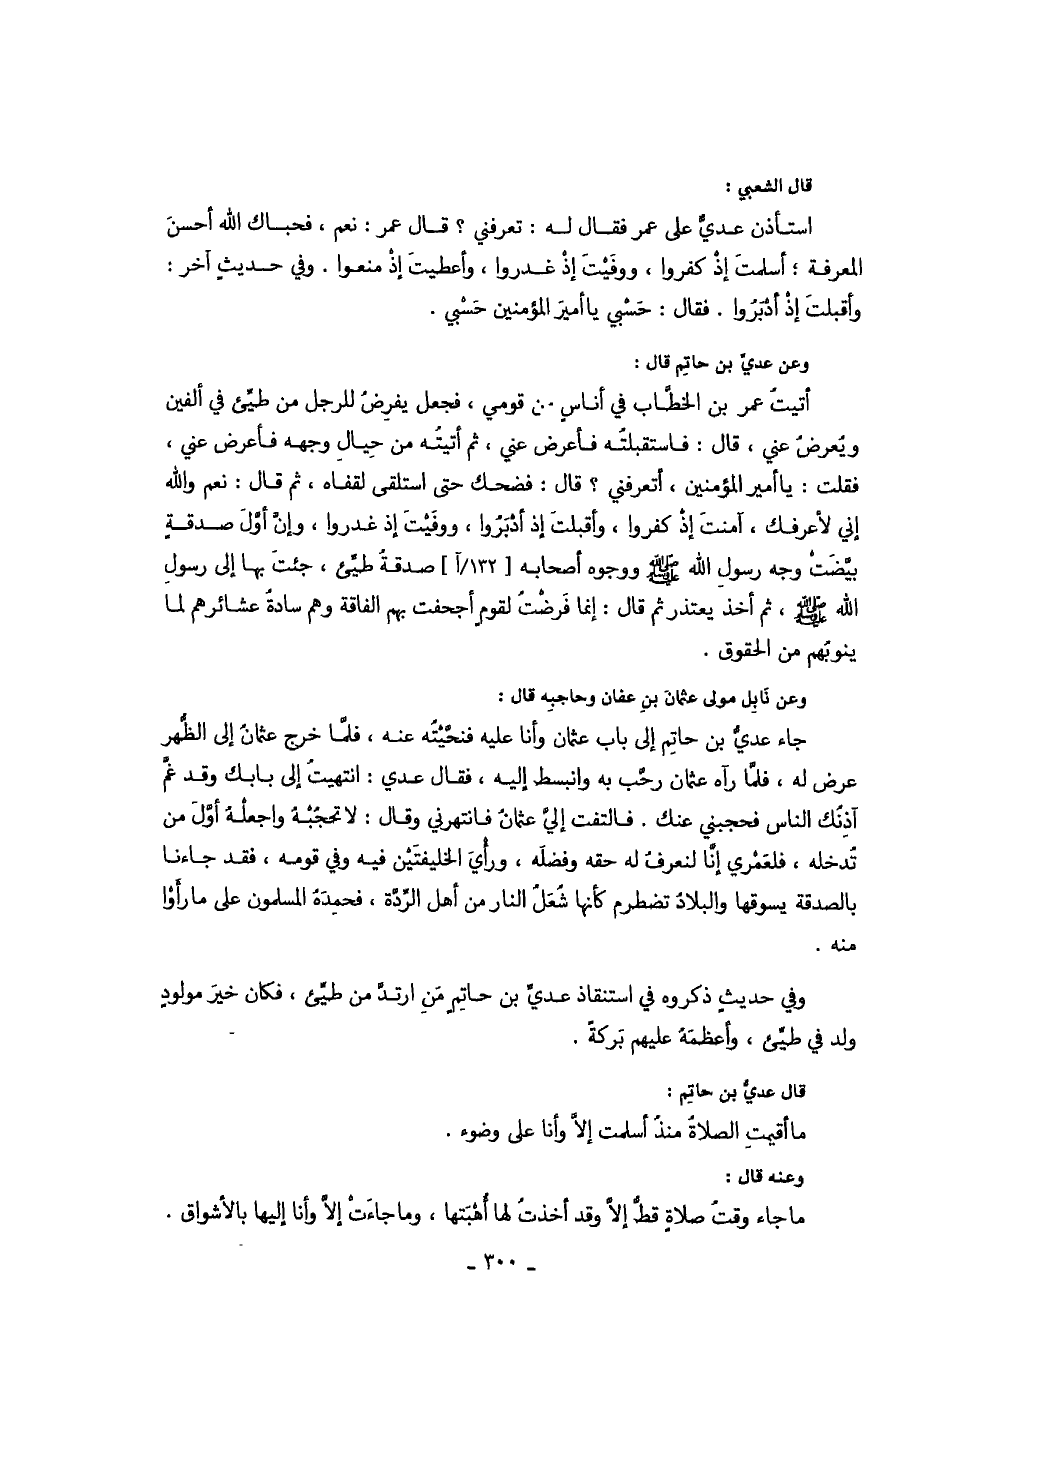 قال الشعبي :
استأذن عديٌّ على عمر فقال له : تعرفني ؟ قال عمر : نعم ، فحباك الله أحسنَ
المعرفة ؛ أسلمتَ إذْ كفروا ، ووفَيْتَ إذْ غدروا ، وأعطيتَ إذْ منعوا . وفي حديثٍ آخر :
وأقبلتَ إذْ أدْبَرُوا . فقال : حَسْبي ياأميرَ المؤمنين حَسْبي .
وعن عديِّ بن حاتِم قال :
أتيتُ عمر بن الخطَّاب في أناسٍ من قومي ، فجعل يفرِضُ للرجل من طيِّئ في ألفين
ويُعرضُ عني ، قال : فاستقبلتُه فأعرض عني ، ثم أتيتُه من حِيالِ وجهه فأعرض عني ،
فقلت : ياأمير المؤمنين ، أتعرفني ؟ قال : فضحك حتى استلقى لقفاه ، ثم قال : نعم والله
إني لأعرفك ، آمنتَ إذْ كفروا ، وأقبلتَ إذ أدْبَرُوا ، ووفَيْتَ إذ غدروا ، وإنَّ أوَّلَ صدقةٍ
بيَّضَتْ وجه رسولِ الله ﷺ ووجوه أصحابه [ ١٣٢/آ ] صدقةُ طيِّئ ، جئتَ بها إلى رسولِ
الله ﷺ ، ثم أخذ يعتذر ثم قال : إنما فَرضْتُ لقومٍ أجحفت بهم الفاقة وهم سادةُ عشائرهم لما
ينوبُهم من الحقوق .
وعن نَابِل مولى عثمانَ بنِ عفان وحاجبِه قال :
جاء عديُّ بن حاتِم إلى باب عثمان وأنا عليه فنحَّيْتُه عنه ، فلمَّا خرج عثمانُ إلى الظُّهر
عرض له ، فلمَّا رآه عثمان رحَّب به وانبسط إليه ، فقال عدي : انتهيتُ إلى بابك وقد غَمَّ
آذِنُك الناس فحجبني عنك . فالتفت إليَّ عثمانُ فانتهرني وقال : لاتحجُبْهُ واجعلْهُ أوَّلَ من
تُدخله ، فلعَمْري إنَّا لنعرفُ له حقه وفضلَه ، ورأْيَ الخليفتَيْن فيه وفي قومه ، فقد جاءنا
بالصدقة يسوقها والبلادُ تضطرم كأنها شُعَلُ النار من أهل الرِّدَّة ، فحمِدَهُ المسلمون على مارأَوْا
منه .
وفي حديثٍ ذكروه في استنقاذ عديِّ بن حاتِمٍ مَنِ ارتدَّ من طيِّئ ، فكان خيرَ مولودٍ
ولد في طيِّئ ، وأعظمَهُ عليهم بَركةً .
قال عديُّ بن حاتِم :
ماأقيمتِ الصلاةُ منذُ أسلمت إلاَّ وأنا على وضوء .
وعنه قال :
ماجاء وقتُ صلاةٍ قطُّ إلاَّ وقد أخذتُ لها أُهْبَتها ، وماجاءَتْ إلاَّ وأنا إليها بالأشواق .
- ٣٠٠ -